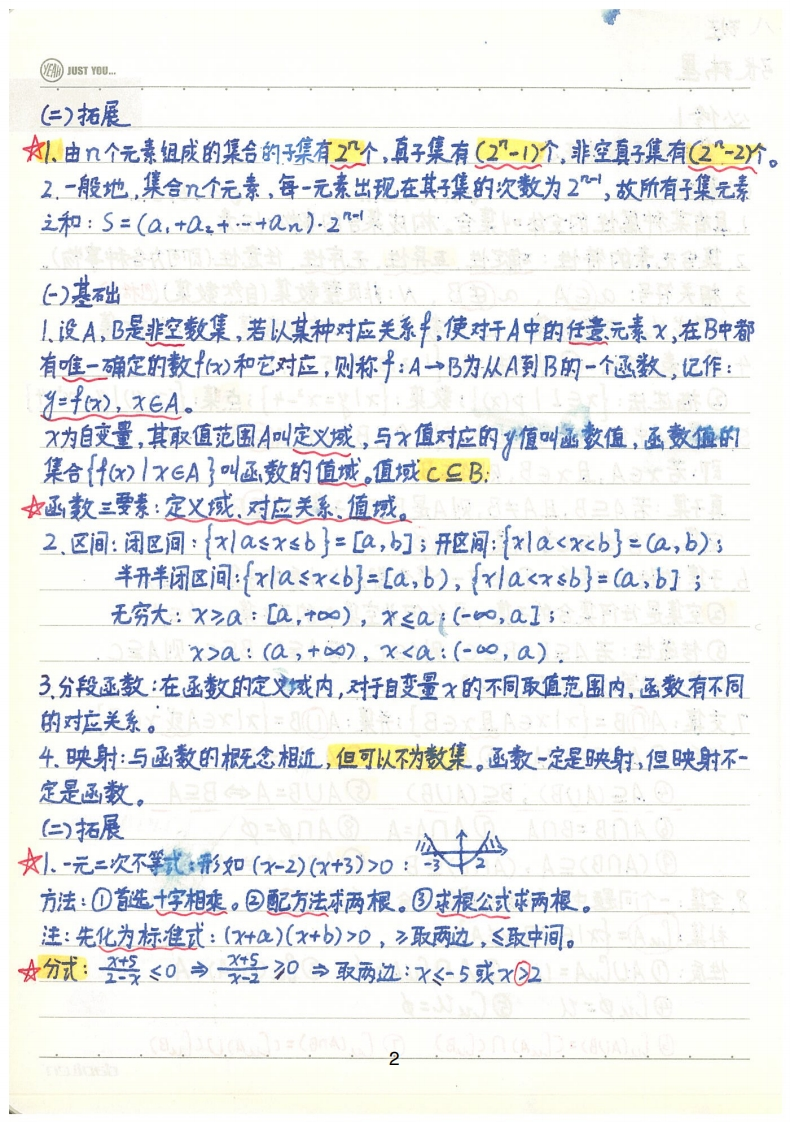 YEAH JUST YOU...
(二)拓展
☆1.由n个元素组成的集合的子集有2ⁿ个,真子集有(2ⁿ-1)个,非空真子集有(2ⁿ-2)个。
2.一般地,集合n个元素,每一元素出现在其子集的次数为2ⁿ⁻¹,故所有子集元素
之和:S=(a₁+a₂+…+aₙ)·2ⁿ⁻¹
(一)基础
1.设A,B是非空数集,若以某种对应关系f,使对于A中的任意元素x,在B中都
有唯一确定的数f(x)和它对应,则称f:A→B为从A到B的一个函数,记作:
y=f(x),x∈A。
x为自变量,其取值范围A叫定义域,与x值对应的y值叫函数值,函数值的
集合{f(x)|x∈A}叫函数的值域。值域C⊆B.
☆函数三要素:定义域、对应关系、值域。
2.区间:闭区间:{x|a≤x≤b}=[a,b];开区间:{x|a<x<b}=(a,b);
半开半闭区间:{x|a≤x<b}=[a,b),{x|a<x≤b}=(a,b];
无穷大:x≥a:[a,+∞),x≤a:(-∞,a];
x>a:(a,+∞),x<a:(-∞,a).
3.分段函数:在函数的定义域内,对于自变量x的不同取值范围内,函数有不同
的对应关系。
4.映射:与函数的概念相近,但可以不为数集。函数一定是映射,但映射不一
定是函数。
(二)拓展
☆1.一元二次不等式:形如(x-2)(x+3)>0: -3 2
方法:①首选十字相乘。②配方法求两根。③求根公式求两根。
注:先化为标准式:(x+a)(x+b)>0,≥取两边,≤取中间。
☆分式:(x+5)/(2-x)≤0⇒(x+5)/(x-2)≥0⇒取两边:x≤-5或x>2
2